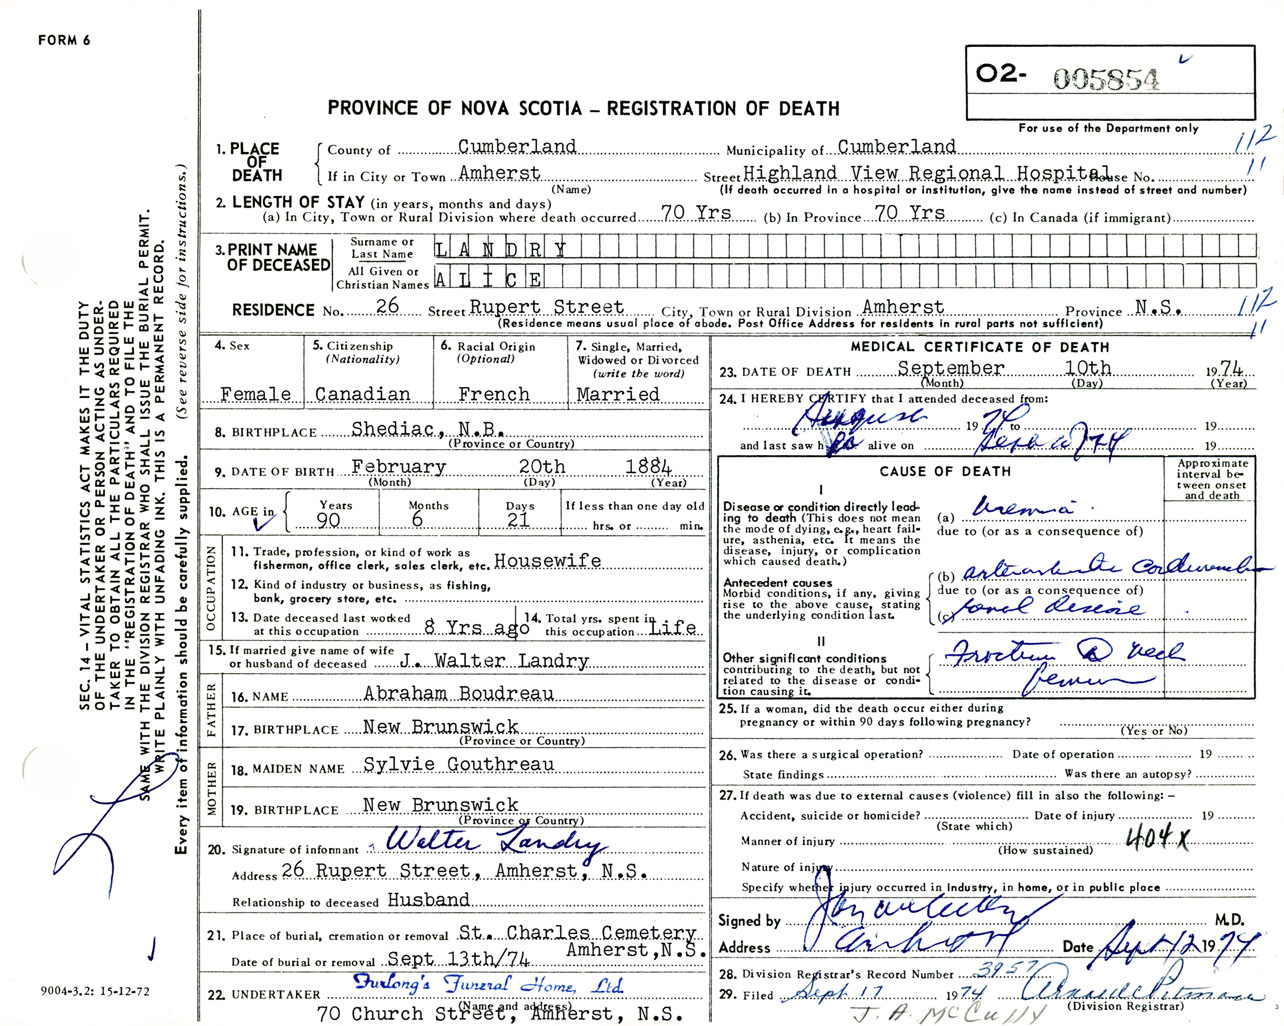 FORM 6
O2- 005854
PROVINCE OF NOVA SCOTIA – REGISTRATION OF DEATH
For use of the Department only
1. PLACE OF DEATH
County of Cumberland Municipality of Cumberland 112
If in City or Town Amherst Street Highland View Regional Hospital House No. 11
(Name) (If death occurred in a hospital or institution, give the name instead of street and number)
2. LENGTH OF STAY (in years, months and days)
(a) In City, Town or Rural Division where death occurred 70 Yrs (b) In Province 70 Yrs (c) In Canada (if immigrant)
3. PRINT NAME OF DECEASED
Surname or Last Name LANDRY
All Given or Christian Names ALICE
RESIDENCE No. 26 Street Rupert Street City, Town or Rural Division Amherst Province N.S. 112
(Residence means usual place of abode. Post Office Address for residents in rural parts not sufficient) 11
SEC. 14 – VITAL STATISTICS ACT MAKES IT THE DUTY
OF THE UNDERTAKER OR PERSON ACTING AS UNDER-
TAKER TO OBTAIN ALL THE PARTICULARS REQUIRED
IN THE "REGISTRATION OF DEATH" AND TO FILE THE
SAME WITH THE DIVISION REGISTRAR WHO SHALL ISSUE THE BURIAL PERMIT.
WRITE PLAINLY WITH UNFADING INK. THIS IS A PERMANENT RECORD.
Every item of information should be carefully supplied. (See reverse side for instructions.)
4. Sex Female
5. Citizenship (Nationality) Canadian
6. Racial Origin (Optional) French
7. Single, Married, Widowed or Divorced (write the word) Married
8. BIRTHPLACE Shediac, N.B.
(Province or Country)
9. DATE OF BIRTH February 20th 1884
(Month) (Day) (Year)
10. AGE in Years 90 Months 6 Days 21 If less than one day old hrs. or min.
OCCUPATION
11. Trade, profession, or kind of work as
fisherman, office clerk, sales clerk, etc. Housewife
12. Kind of industry or business, as fishing,
bank, grocery store, etc.
13. Date deceased last worked
at this occupation 8 Yrs ago
14. Total yrs. spent in
this occupation Life
15. If married give name of wife
or husband of deceased J. Walter Landry
FATHER
16. NAME Abraham Boudreau
17. BIRTHPLACE New Brunswick
(Province or Country)
MOTHER
18. MAIDEN NAME Sylvie Gouthreau
19. BIRTHPLACE New Brunswick
(Province or Country)
20. Signature of informant Walter Landry
Address 26 Rupert Street, Amherst, N.S.
Relationship to deceased Husband
21. Place of burial, cremation or removal St. Charles Cemetery
Amherst,N.S.
Date of burial or removal Sept 13th/74
22. UNDERTAKER Furlong's Funeral Home, Ltd.
(Name and address)
70 Church Street, Amherst, N.S.
9004-3.2: 15-12-72
MEDICAL CERTIFICATE OF DEATH
23. DATE OF DEATH September 10th 1974
(Month) (Day) (Year)
24. I HEREBY CERTIFY that I attended deceased from:
August 1974 to 19
and last saw h alive on 19
CAUSE OF DEATH
Approximate interval be-tween onset and death
I
Disease or condition directly lead-
ing to death (This does not mean
the mode of dying, e.g., heart fail-
ure, asthenia, etc. It means the
disease, injury, or complication
which caused death.)
(a) Uremia
due to (or as a consequence of)
Antecedent causes
Morbid conditions, if any, giving
rise to the above cause, stating
the underlying condition last.
(b)
due to (or as a consequence of)
(c) renal disease
II
Other significant conditions
contributing to the death, but not
related to the disease or condi-
tion causing it.
Fracture R neck
femur
25. If a woman, did the death occur either during
pregnancy or within 90 days following pregnancy?
(Yes or No)
26. Was there a surgical operation? Date of operation 19
State findings Was there an autopsy?
27. If death was due to external causes (violence) fill in also the following: –
Accident, suicide or homicide? Date of injury 19
(State which)
Manner of injury 404X
(How sustained)
Nature of injury
Specify whether injury occurred in Industry, in home, or in public place
Signed by M.D.
Address Amherst Date Sept 12 1974
28. Division Registrar's Record Number 3957
29. Filed Sept 17 1974
(Division Registrar)
J. A. McCully